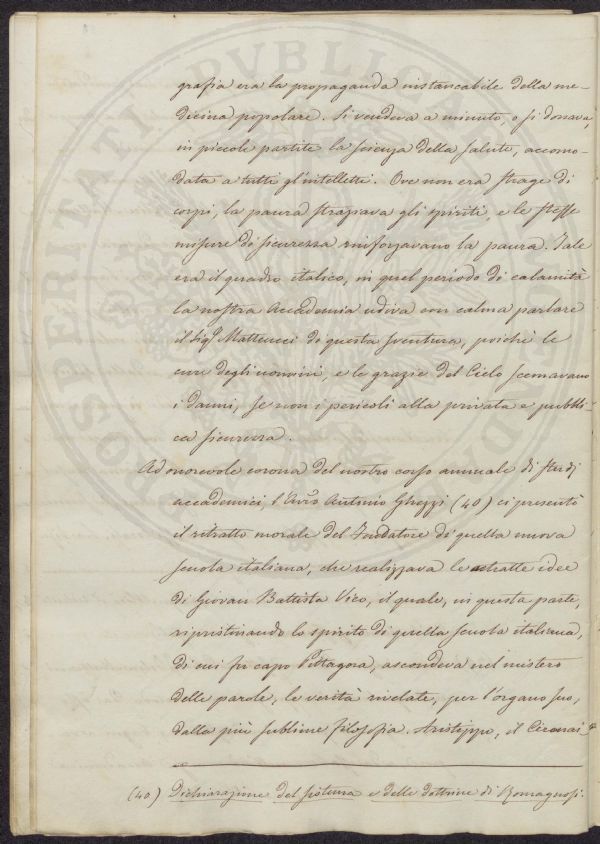 grafia era la propaganda instancabile della me-
dicina popolare. Si vendeva a minuto, o si donava,
in piccole partite la scienza della salute, accomo-
data a tutti gl'intelletti. Ove non era strage di
corpi, la paura straziava gli spiriti, e le stesse
misure di sicurezza rinforzavano la paura. Tale
era il quadro italico, in quel período di calamità
la nostra Accademia udiva con calma parlare
il Sigr Matteucci di questa sventura, poichè le
cure degli uomini, e le grazie del Cielo scemavano
i danni, se non i pericoli alla privata e pubbli-
ca sicurezza.
Ad onorevole corona del nostro corso annuale di studj
accademici, l'Avv̄o Antonio Ghezzi (40) ci presentò
il ritratto morale del Fondatore di quella nuova
scuola italiana, che realizzava le astratte idee
di Giovan Battista Vico, il quale, in questa parte,
ripristinando lo spirito di quella scuola italiana,
di cui fu capo Pittagora, ascondeva nel mistero
delle parole, le verità rivelate, per l'organo suo,
dalla più sublime filosofia. Aristippo, il Cirenai-
(40) Dichiarazione del sistema e delle dottrine di Romagnosi.
PROSPERITATI PVBLICAE